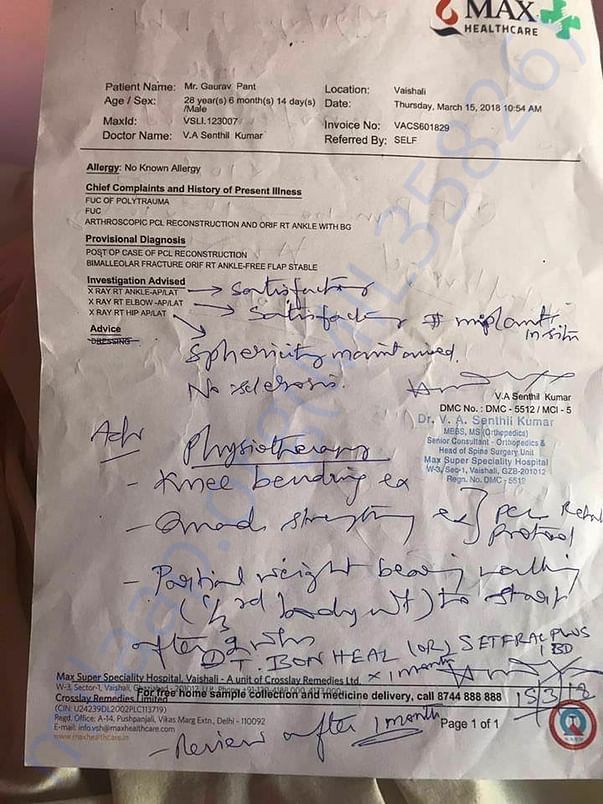 MAX
HEALTHCARE
Patient Name: Mr. Gaurav Pant
Location: Vaishali
Age / Sex: 28 year(s) 6 month(s) 14 day(s) /Male
Date: Thursday, March 15, 2018 10:54 AM
MaxId: VSLI.123007
Invoice No: VACS601829
Doctor Name: V.A Senthil Kumar
Referred By: SELF
Allergy: No Known Allergy
Chief Complaints and History of Present Illness
FUC OF POLYTRAUMA
FUC
ARTHROSCOPIC PCL RECONSTRUCTION AND ORIF RT ANKLE WITH BG
Provisional Diagnosis
POST OP CASE OF PCL RECONSTRUCTION
BIMALLEOLAR FRACTURE ORIF RT ANKLE-FREE FLAP STABLE
Investigation Advised
X RAY RT ANKLE-AP/LAT → Satisfactory
X RAY RT ELBOW -AP/LAT → Satisfactory # implant in situ
X RAY RT HIP AP/LAT
Advice
DRESSING
Sphericity maintained.
No sclerosis.
V.A Senthil Kumar
DMC No.: DMC - 5512 / MCI - 5
Dr. V. A. Senthil Kumar
MBBS, MS (Orthopedics)
Senior Consultant - Orthopedics &
Head of Spine Surgery Unit
Max Super Speciality Hospital
W-3, Sec-1, Vaishali, GZB-201012
Regn. No. DMC - 5512
Adv
Physiotherapy
- Knee bending ex
- Quads strength ex ] PCL Rehab Protocol
- Partial weight bearing walking
(1/3rd body wt) to start
after 2 wks
T. BON HEAL (OR) SETFRAC PLUS
1 BD
x 1 month
Max Super Speciality Hospital, Vaishali - A unit of Crosslay Remedies Ltd.
W-3, Sector-1, Vaishali,
For free home sample collection and medicine delivery, call 8744 888 888
15 3 18
Crosslay Remedies Limited
(CIN: U24239DL2002PLC113719)
Regd. Office: A-14, Pushpanjali, Vikas Marg Extn., Delhi - 110092
E-mail: info.vsh@maxhealthcare.com
www.maxhealthcare.in
Page 1 of 1
- Review after 1 month